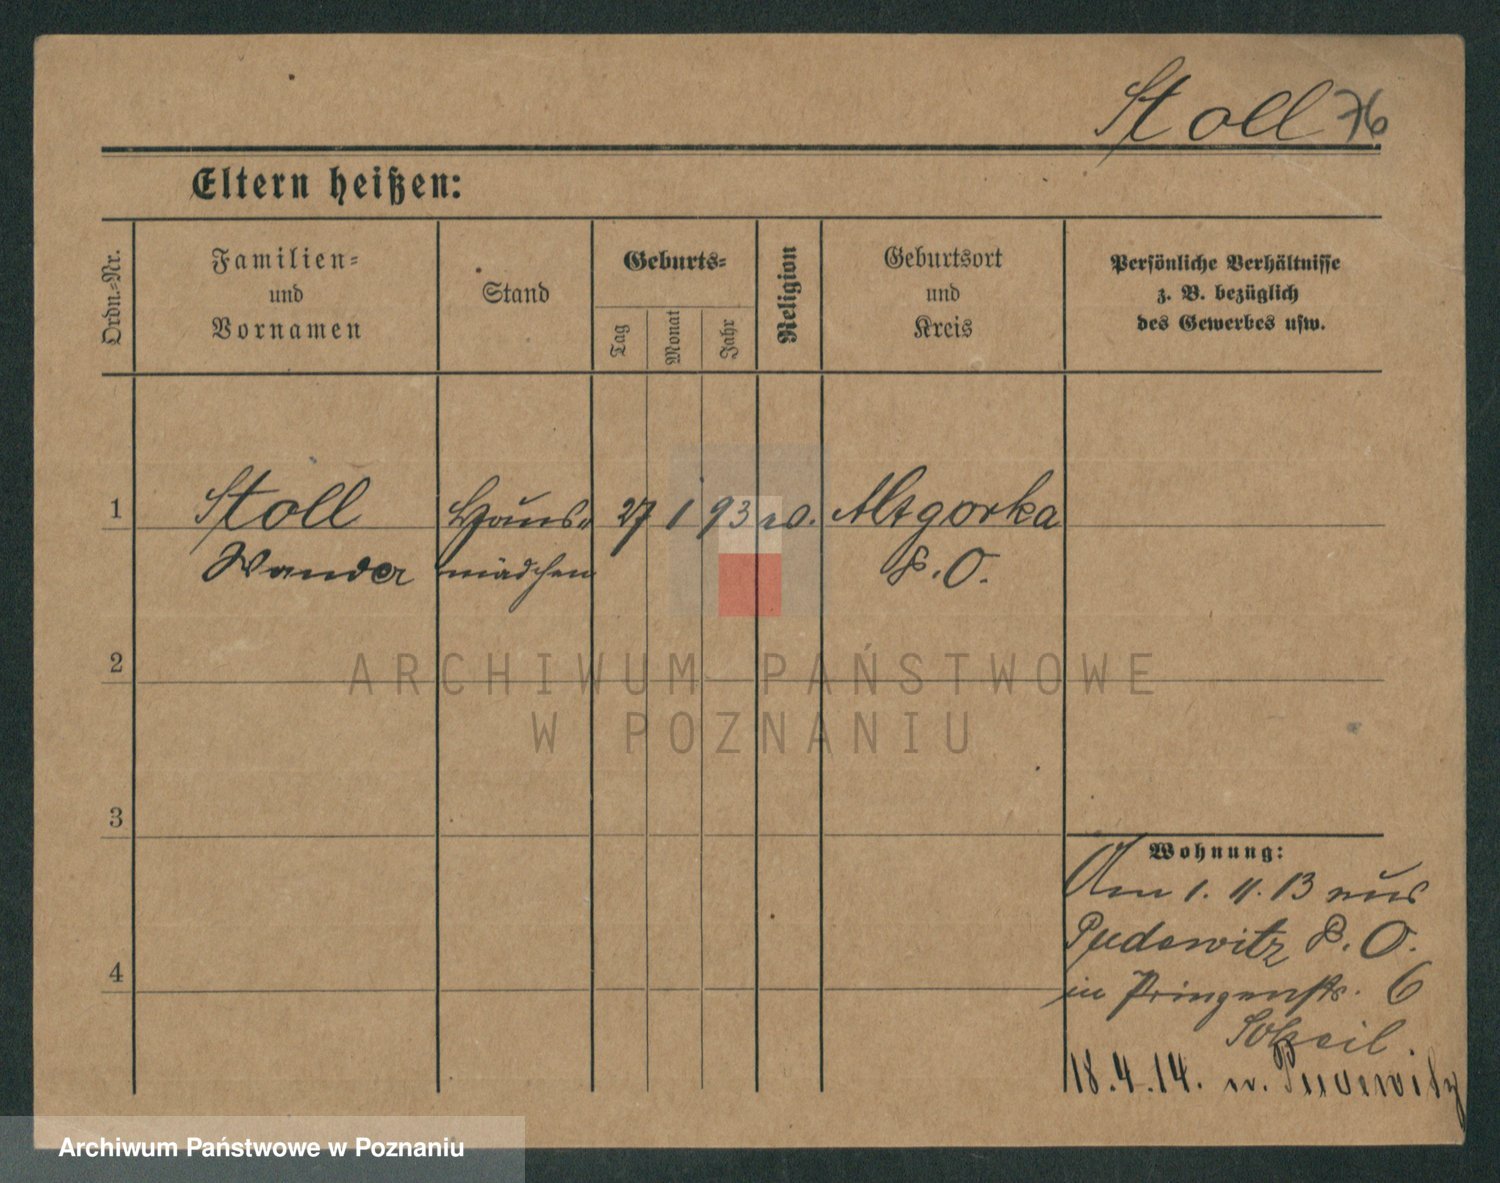 Stoll 76
Eltern heißen:
Ordn.-Nr.
Familien-
und
Vornamen
Stand
Geburts-
Tag
Monat
Jahr
Religion
Geburtsort
und
Kreis
Persönliche Verhältnisse
z. B. bezüglich
des Gewerbes usw.
1 Stoll Haus- 27 1 93 Altgorka
Wanda mädchen P. O.
2
ARCHIWUM PAŃSTWOWE
W POZNANIU
3
Wohnung:
Am 1. 11. 13 aus
Pudewitz P. O.
4
in Prinzenstr. 6
18.4.14. n. Pudewitz
Archiwum Państwowe w Poznaniu